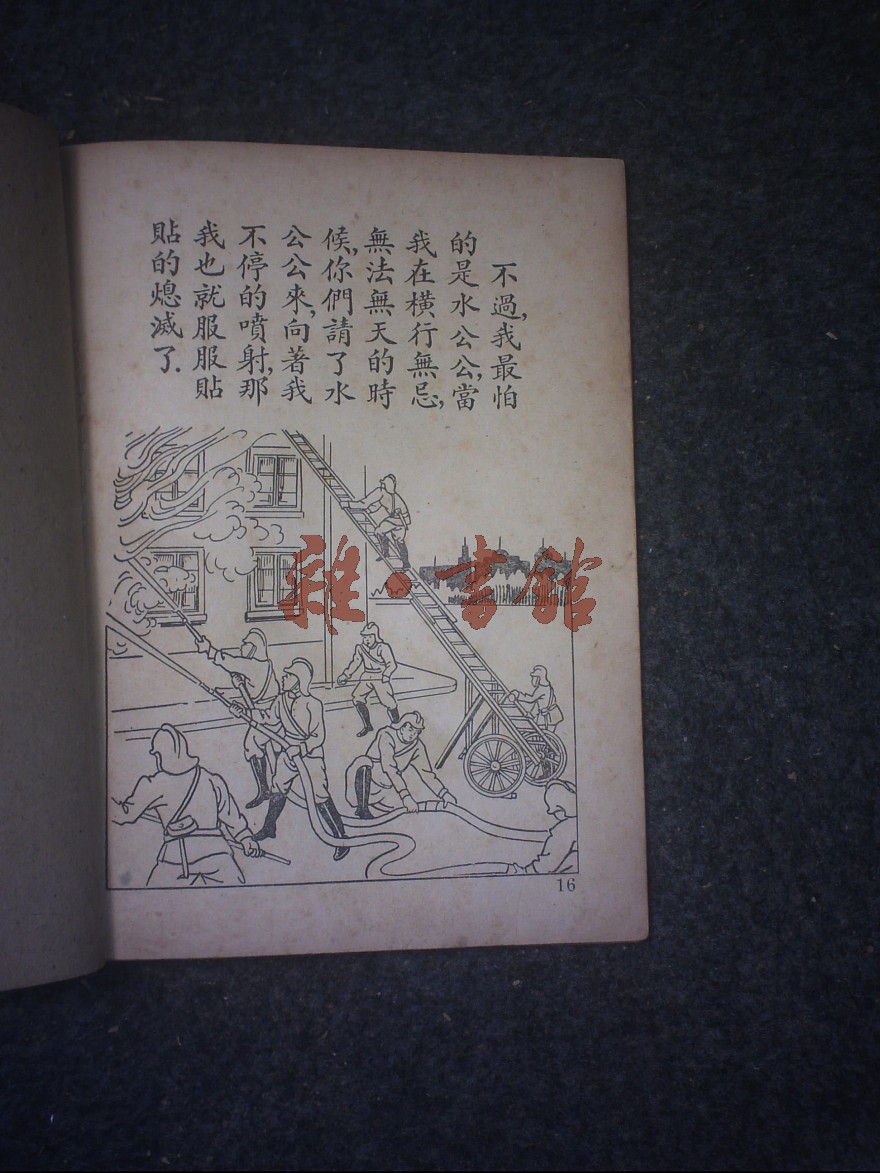 不過,我最怕
的是水公公,當
我在橫行無忌,
無法無天的時
候,你們請了水
公公來,向著我
不停的噴射,那
我也就服服貼
貼的熄滅了.
雜·書館
16